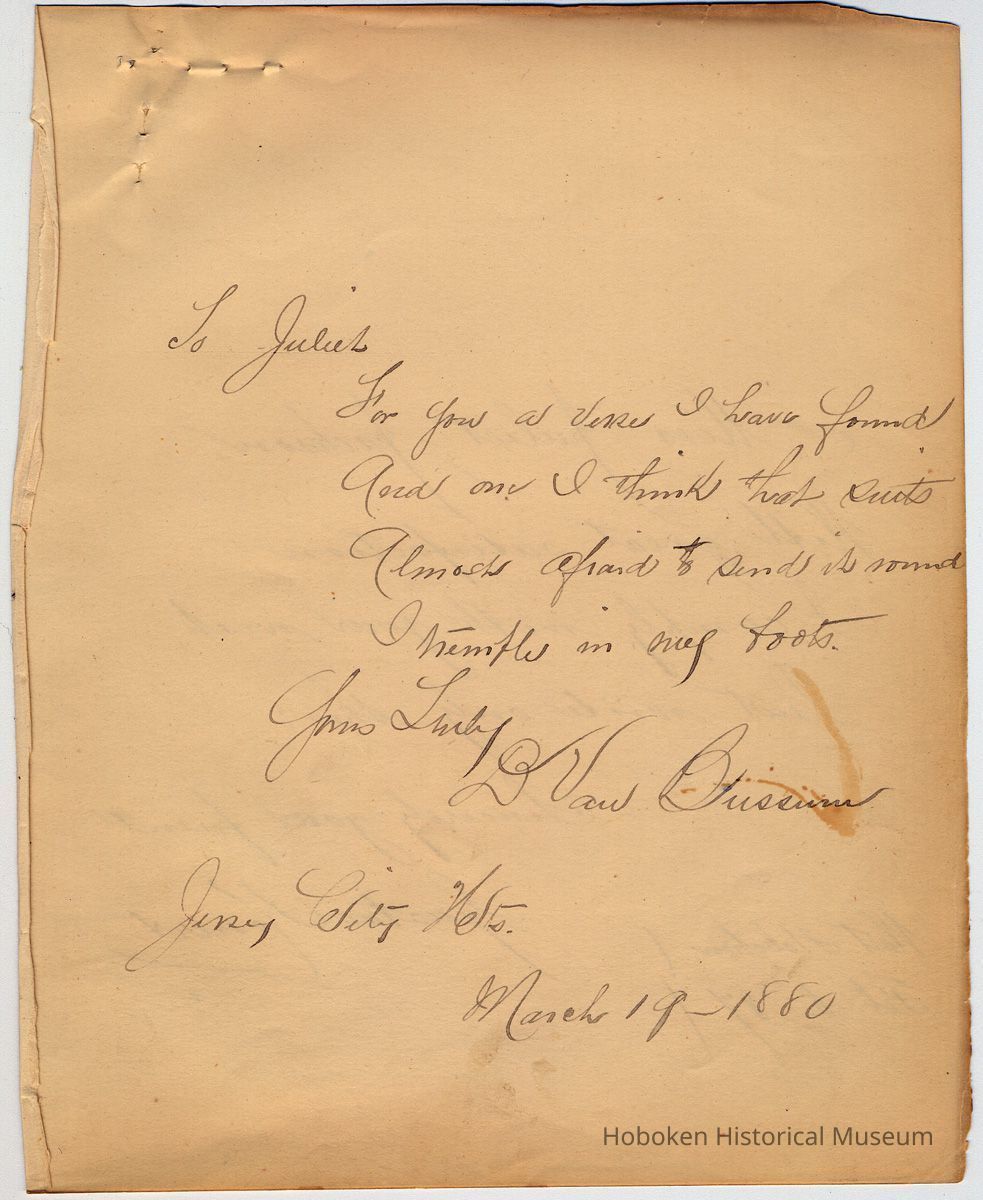 To Juliet
For you a verse I have found
And one I think that suits
Almost afraid to send it round
I tremble in my boots.
Yours Truly
D Van Bussum
Jersey City Hts.
March 19 - 1880
Hoboken Historical Museum